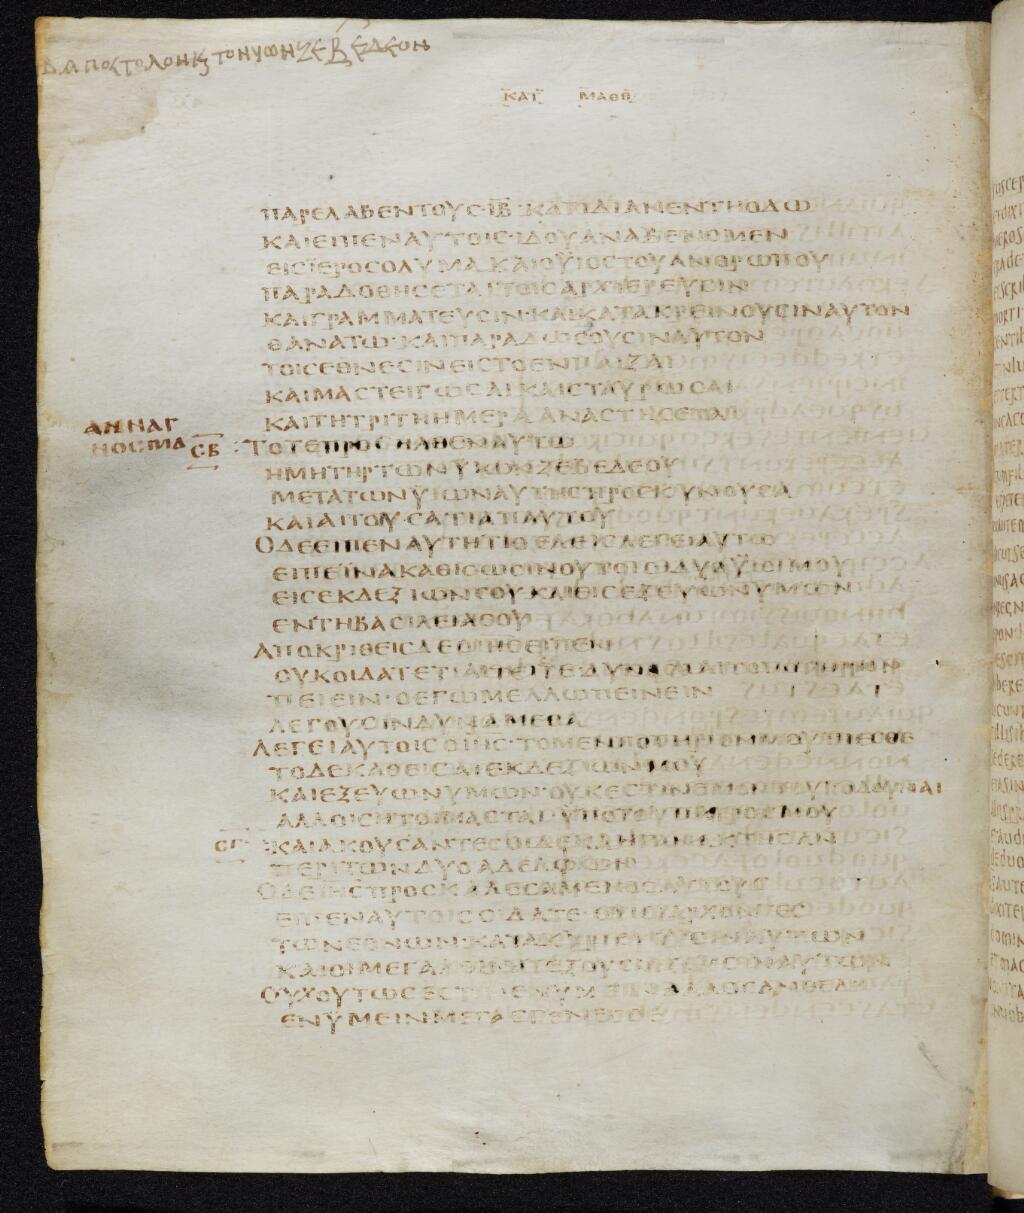 ΚΑΤ ΜΑΘΘ
ΠΑΡΕΛΑΒΕΝ ΤΟΥΣ ΙΒ ΚΑΤ ΙΔΙΑΝ ΕΝ ΤΗ ΟΔΩ
ΚΑΙ ΕΙΠΕΝ ΑΥΤΟΙΣ ΙΔΟΥ ΑΝΑΒΕΝΟΜΕΝ
ΕΙΣ ΪΕΡΟΣΟΛΥΜΑ ΚΑΙ Ο ΥΙΟΣ ΤΟΥ ΑΝΘΡΩΠΟΥ
ΠΑΡΑΔΟΘΗΣΕΤΑΙ ΤΟΙΣ ΑΡΧΙΕΡΕΥΣΙΝ
ΚΑΙ ΓΡΑΜΜΑΤΕΥΣΙΝ ΚΑΙ ΚΑΤΑΚΡΕΙΝΟΥΣΙΝ ΑΥΤΟΝ
ΘΑΝΑΤΩ ΚΑΙ ΠΑΡΑΔΩΣΟΥΣΙΝ ΑΥΤΟΝ
ΤΟΙΣ ΕΘΝΕΣΙΝ ΕΙΣ ΤΟ ΕΝΠΑΙΖΑΙ
ΚΑΙ ΜΑΣΤΕΙΓΩΣΑΙ ΚΑΙ ΣΤΑΥΡΩΣΑΙ
ΚΑΙ ΤΗ ΤΡΙΤΗ ΗΜΕΡΑ ΑΝΑΣΤΗΣΕΤΑΙ
ΑΝΝΑΓ
ΝΟΣΜΑ
ΣΒ ΤΟΤΕ ΠΡΟΣΗΛΘΕΝ ΑΥΤΩ
Η ΜΗΤΗΡ ΤΩΝ ΥΙΩΝ ΖΕΒΕΔΕΟΥ
ΜΕΤΑ ΤΩΝ ΫΙΩΝ ΑΥΤΗΣ ΠΡΟΣΚΥΝΟΥΣΑ
ΚΑΙ ΑΙΤΟΥΣΑ ΤΙ ΑΠ ΑΥΤΟΥ
Ο ΔΕ ΕΙΠΕΝ ΑΥΤΗ ΤΙ ΘΕΛΕΙΣ ΛΕΓΕΙ ΑΥΤΩ
ΕΙΠΕ ΪΝΑ ΚΑΘΙΣΩΣΙΝ ΟΥΤΟΙ ΟΙ ΔΥΟ ΫΙΟΙ ΜΟΥ
ΕΙΣ ΕΚ ΔΕΞΙΩΝ ΣΟΥ ΚΑΙ ΕΙΣ ΕΞ ΕΥΩΝΥΜΩΝ
ΕΝ ΤΗ ΒΑΣΙΛΕΙΑ ΣΟΥ
ΑΠΟΚΡΙΘΕΙΣ ΔΕ Ο ΙΗΣ ΕΙΠΕΝ
ΟΥΚ ΟΙΔΑΤΕ ΤΙ ΑΙΤΕΙΣΘΕ ΔΥΝΑΣΘΑΙ ΤΟ ΠΟΤΗΡΙΟΝ
ΠΕΙΕΙΝ Ο ΕΓΩ ΜΕΛΛΩ ΠΕΙΝΕΙΝ
ΛΕΓΟΥΣΙΝ ΔΥΝΑΜΕΘΑ
ΛΕΓΕΙ ΑΥΤΟΙΣ Ο ΙΗΣ ΤΟ ΜΕΝ ΠΟΤΗΡΙΟΝ ΜΟΥ ΠΙΕΣΘΕ
ΤΟ ΔΕ ΚΑΘΕΙΣΑΙ ΕΚ ΔΕΞΙΩΝ ΜΟΥ
ΚΑΙ ΕΞ ΕΥΩΝΥΜΩΝ ΟΥΚ ΕΣΤΙΝ ΕΜΟΝ ΤΟΥΤΟ ΔΟΥΝΑΙ
ΑΛΛΟΙΣ ΗΤΟΙΜΑΣΤΑΙ ΥΠΟ ΤΟΥ ΠΑΤΡΟΣ ΜΟΥ
ΣΓ ΚΑΙ ΑΚΟΥΣΑΝΤΕΣ ΟΙ ΔΕΚΑ ΗΓΑΝΑΚΤΗΣΑΝ
ΠΕΡΙ ΤΩΝ ΔΥΟ ΑΔΕΛΦΩΝ
Ο ΔΕ ΙΗΣ ΠΡΟΣΚΑΛΕΣΑΜΕΝΟΣ ΑΥΤΟΥΣ
ΕΙΠΕΝ ΑΥΤΟΙΣ ΟΙΔΑΤΕ ΟΤΙ ΟΙ ΑΡΧΟΝΤΕΣ
ΤΩΝ ΕΘΝΩΝ ΚΑΤΑΚΥΡΙΕΥΟΥΣΙΝ ΑΥΤΩΝ
ΚΑΙ ΟΙ ΜΕΓΑΛΟΙ ΑΥΤΩΝ
ΟΥΧ ΟΥΤΩΣ ΕΣΤΙΝ ΕΝ ΥΜΕΙΝ ΑΛΛ ΟΣ ΑΝ ΘΕΛΗ
ΕΝ ΥΜΕΙΝ ΜΕΓΑΣ